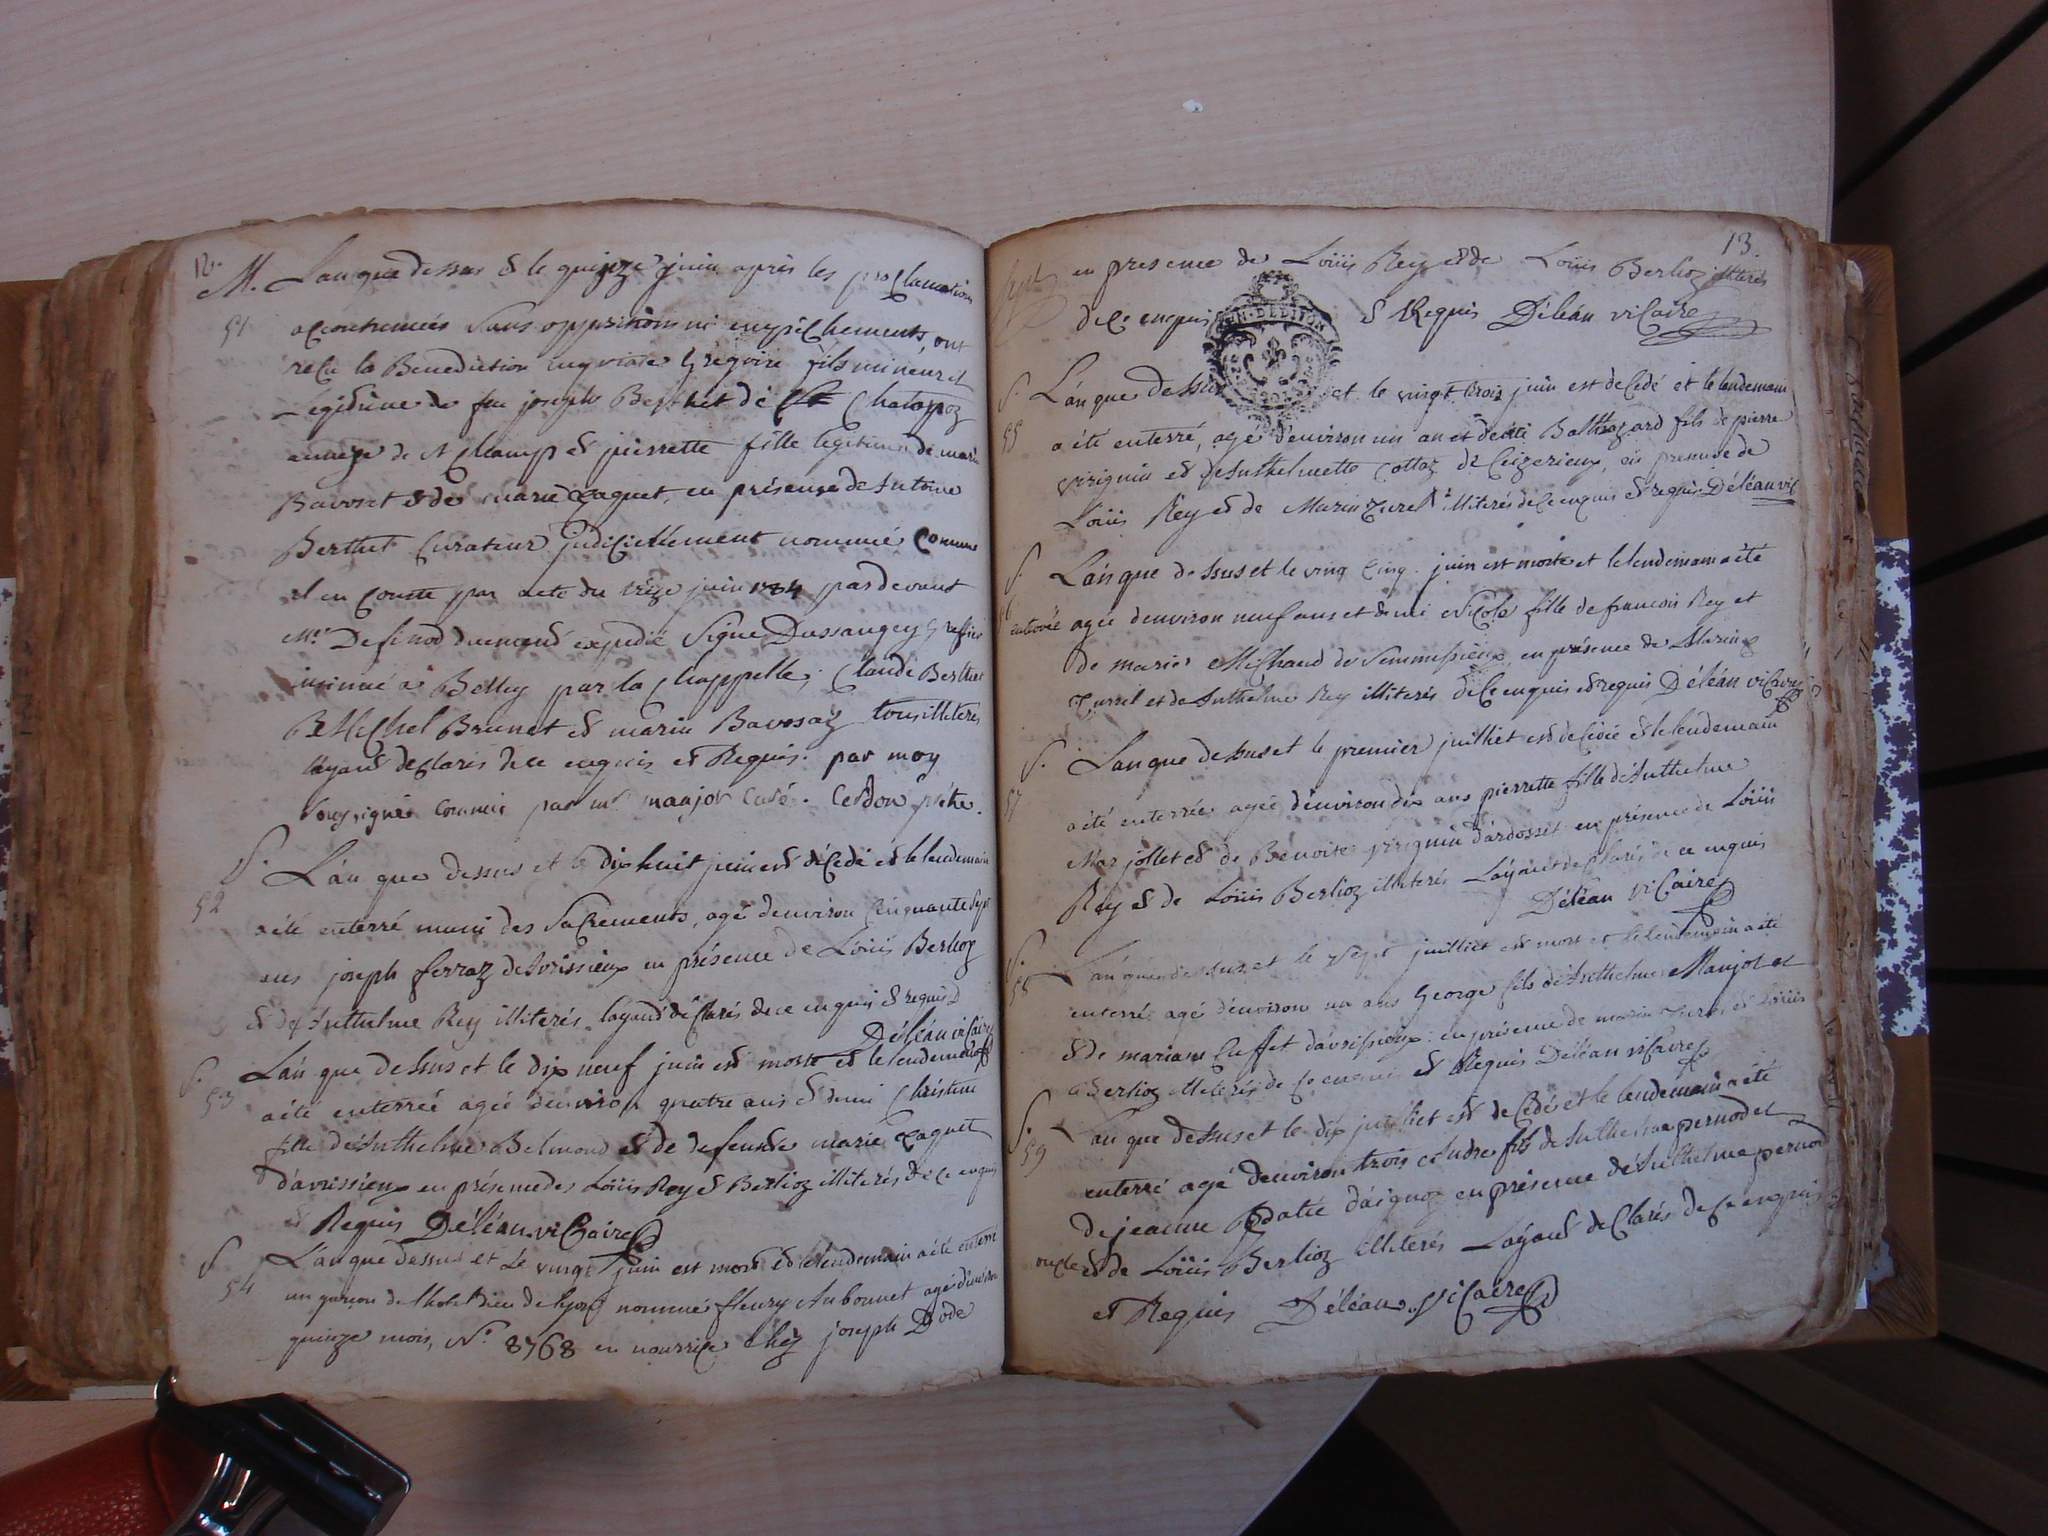 12.
M. Lanque dessus & le quinze juin après les proclamations
51 accoutumées sans oppositions ni empêchements, ont
reçu la Benediction Grégoire fils mineur et
Legitime de feu joseph Berthet de Chatonoz
de St Champ & pierrette fille legitime de marin
Bavoset & de marie Paquet, en présence de Antoine
Berthet Curateur judiciellement nommé comme
il en Conste par acte du treize juin 1784 pardevant
Mr Definod duement expedié Signé Dussaugey Greffier
insinué a Belley par la Chappelle; Claude Berthet
Michel Brunet & marin Bavosat tous illiterés
layant declarés de ce enquis et Requis. par moy
Soussigné Commis par mr maujot Curé. Cerdon prêtre.
S. L'an que dessus et le dix huit juin est décédé et le lendemain
52 a été enterré muni des Sacrements, agé denviron Cinquante sept
ans joseph ferraz d'avrissieux en présence de Loüis Berlioz
& de Anthelme Rey illiterés layant déClarés de ce enquis & requis
Déléan viCaire
S. L'an que dessus et le dix neuf juin est morte et le lendemain
53 a été enterrée agée denviron quatre ans & demi Christine
fille de Anthelme Belmond & de defunte marie Paquet
d'avrissieux en présence de Loüis Rey & Berlioz illiterés de ce enquis
& Requis Déléan viCaire
S. L'anque dessus et Le vingt juin est mort et lelendemain a été enterré
54 un garcon de lhotel dieu de Lyon nommé fleury Aubonnet agé denviron
quinze mois, N.º 8768 en nourrice Chez joseph Dode
13.
en presence de Loüis Rey & de Loüis Berlioz illiterés
de Ce enquis & Requis Déléan viCaire
GEN. DE LYON
S. L'an que dessus et le vingt trois juin est deCedé et le lendemain
55 a été enterré, agé d'environ un an et demi Balthazard fils de pierre
virignin et de Anthelmette Cottaz de Ceizerieux, en presence de
Loüis Rey et de Marin Turel illiterés de Ce enquis & requis Déléan vic
S. L'an que dessus et le vingt Cinq juin est morte et le lendemain a été
enterrée agée denviron neuf ans et demi Nicole fille de francois Rey et
de marie Michaud de Semmessieux, en présence de Marin
Turrel et de Anthelme Rey illiterés de Ce enquis & requis Déléan viCaire
S. Lanque dessus et le premier juilliet est deCédée & le lendemain
57 a été enterrée agée d'environ dix ans pierrette fille de Anthelme
Marjollet & de Benoite virignin d'ardosset en présence de Loüis
Rey & de Loüis Berlioz illiterés Layant deClarés de ce enquis
Déléan viCaire
S. L'an que dessus et le sept juilliet est mort et le lendemain a été
58 enterré agé d'environ un ans George fils de Anthelme Maujot et
& de mariane Cuffet d'avrissieux: en présence de marin Turel & Loüis
Berlioz illiterés de Ce enquis & Requis Déléan viCaire
S. L'an que dessus et le dix juilliet est deCédé et le lendemain a été
59 enterré agé denviron trois Andre fils de Anthelme pernod et
de jeanne d'aignoz en présence de Anthelme pernod
oncle & de Loüis Berlioz illiterés Layant deClarés de Ce enquis
et Requis Déléan ViCaire